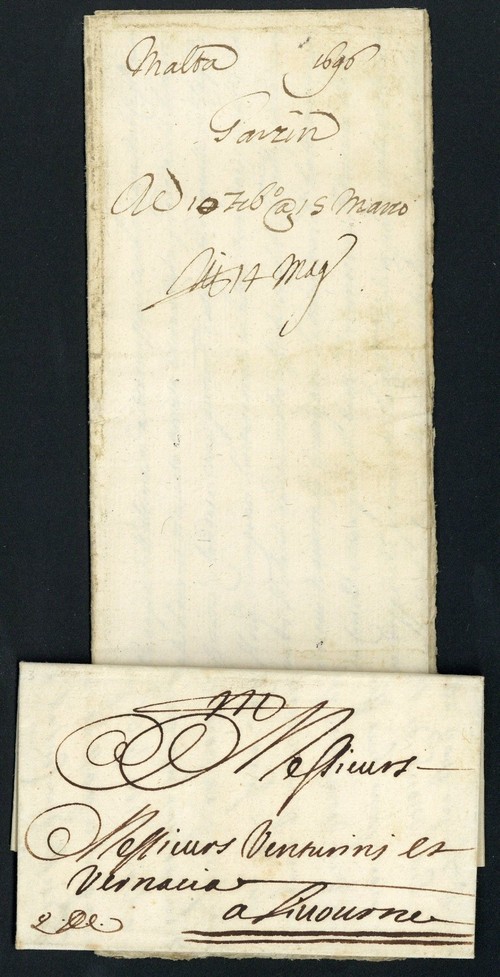 Malta 1696
Garzin
Ad 10 Feb.º @ 15 Marzo
14 Mag
M
Messieurs
Messieurs Venturini et
Vernacia
a Livourne